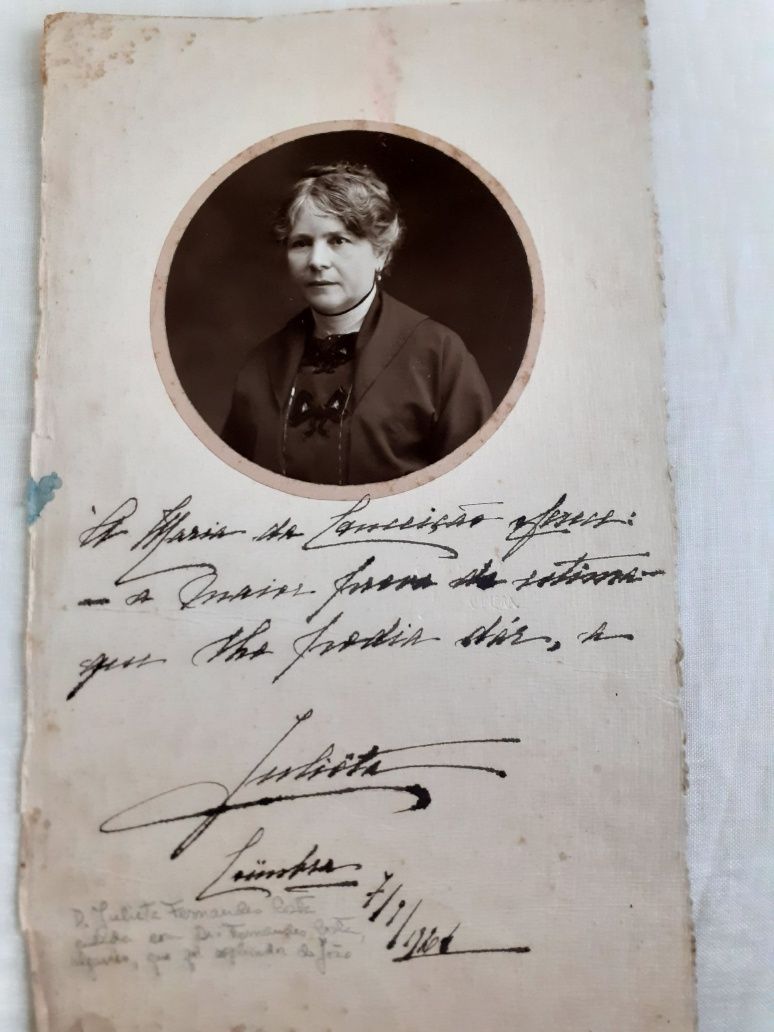 Á Maria da Conceição oferece:
- a maior prova de estima -
que lhe podia dár, a
Juliêta
Coimbra
7/7/926
D. Julieta Fernandes Costa
casada com Dr. Fernandes Costa,
que foi explicador de João